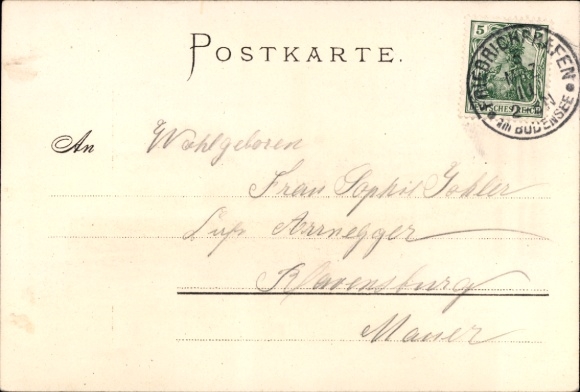 POSTKARTE.
5
DEUTSCHES REICH
FRIEDRICHSHAFEN
am BODENSEE
An Wohlgeboren
Frau Sophie
Arnegger
Ravensburg
Mauer